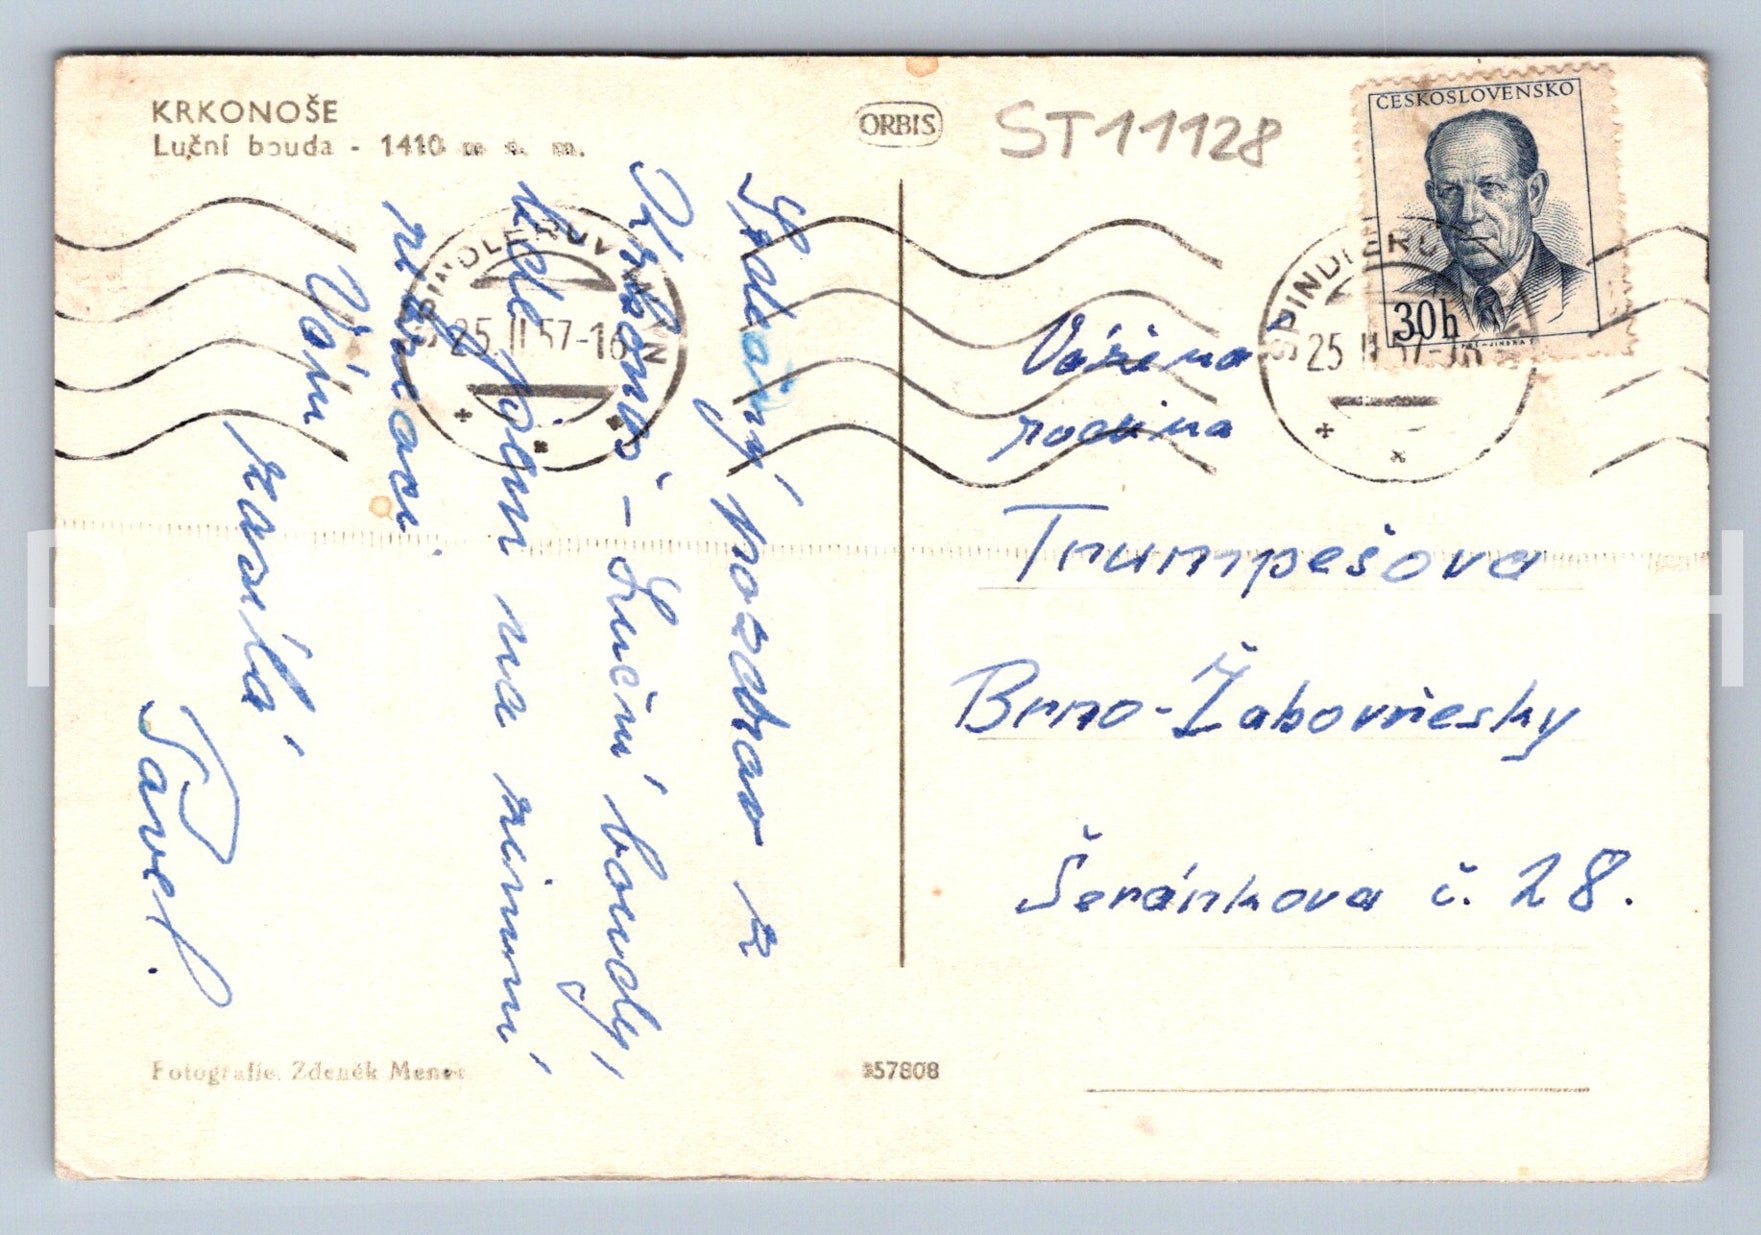 KRKONOŠE
Luční bouda - 1410 m n. m.
ORBIS
ST11128
ČESKOSLOVENSKO
30h
ŠPINDLERŮV MLÝN
25 II 57-16
ŠPINDLERŮ
25 II 57-16
Srdečný pozdrav z
Krkonoš - Luční boudy,
kde jsem na zimní
rekreaci
Vám zasílá
Pavel.
Vážená
rodina
Trumpešova
Brno-Žabovřesky
Šeránkova č. 28.
Fotografie Zdeněk Menec
357808